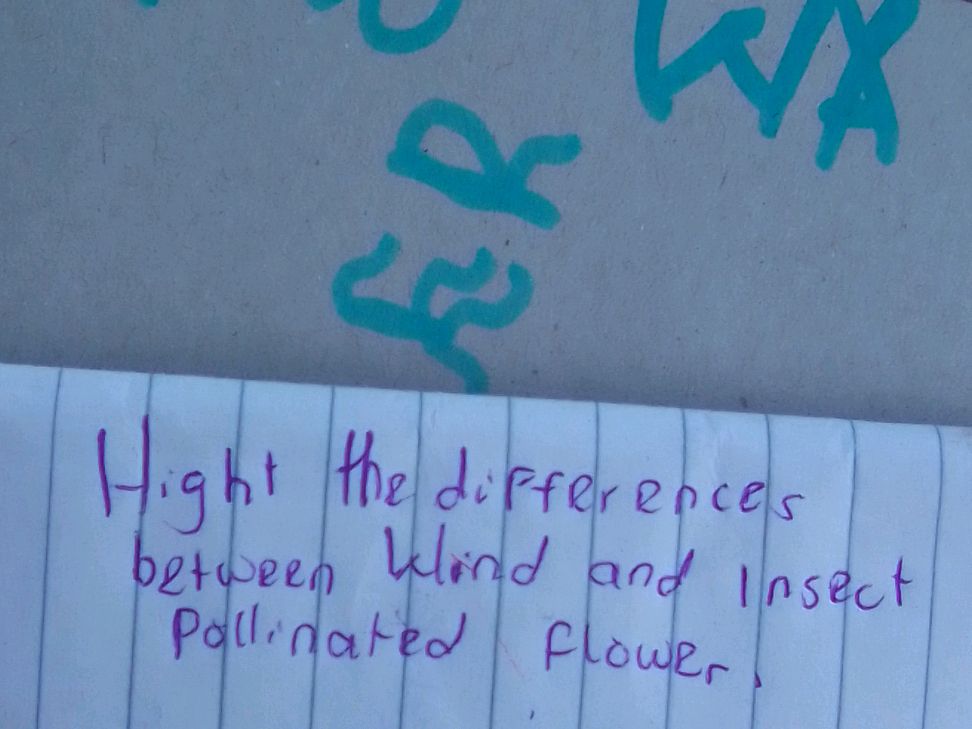 WA
ER
Hight the differences
between Wind and insect
Pollinated flower.